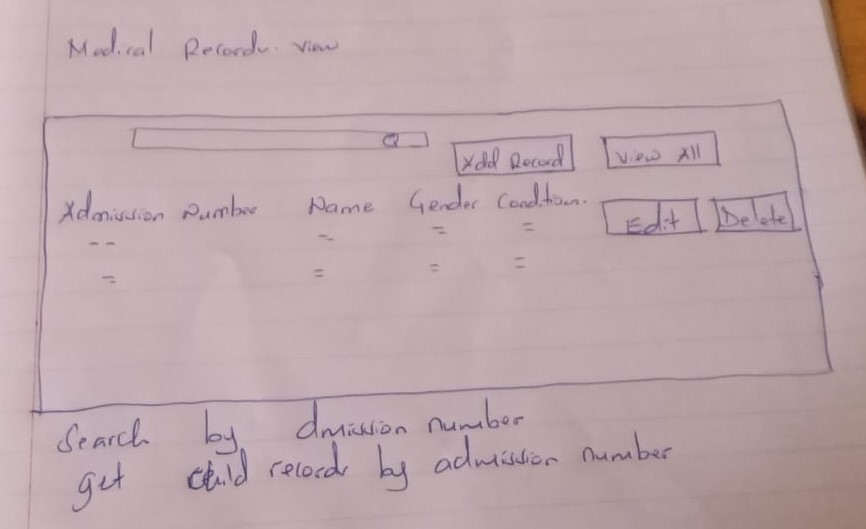 Medical Records view
Add Record
View All
Admission Number Name Gender Condition.
Edit
Delete
Search by dmission number
get child records by admission number